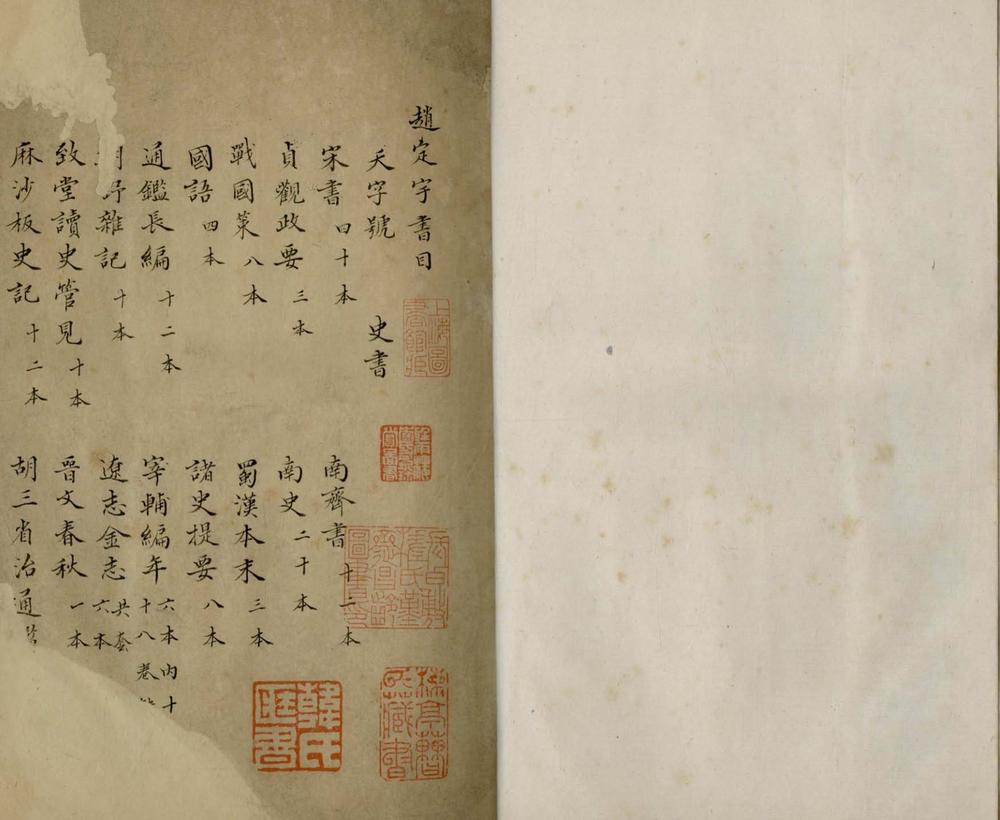 趙定宇書目
天字號 史書
宋書 四十本 南齊書 十二本
貞觀政要 三本 南史 二十本
戰國策 八本 蜀漢本末 三本
國語 四本 諸史提要 八本
通鑑長編 十二本 宰輔編年 六本內十 十八卷
雜記 十本 遼志金志 共套 六本
致堂讀史管見 十本 晉文春秋 一本
麻沙板史記 十二本 胡三省治通
上海圖書館藏
韓氏藏書